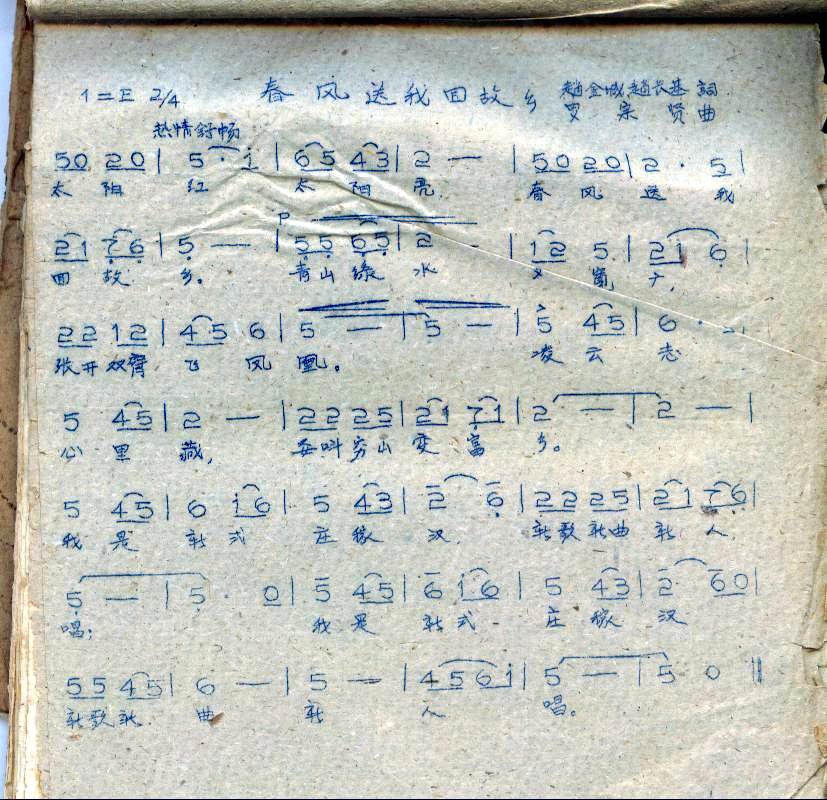 1=E 2/4 春风送我回故乡 趙金城 趙长基 詞
宗贤曲
热情舒畅
50 20 | 5 · i | 65 43 | 2 — | 50 20 | 2 · 5 |
太阳 红 太阳 亮 春风 送 我
P
21 76 | 5 — | 55 65 | 2 — | 12 5 | 21 6 |
回故 乡。 青山绿 水
22 12 | 45 6 | 5 — | 5 — | 5 45 | 6 ·
张开双臂 飞凤 凰。 凌云 志
5 45 | 2 — | 22 25 | 21 71 | 2 — | 2 — |
心里 藏, 要叫穷山 变富 乡。
5 45 | 6 i6 | 5 43 | 2 6 | 22 25 | 21 76 |
我是 新式 庄稼 汉, 新歌新曲 新人
5 — | 5 · 0 | 5 45 | 6 i6 | 5 43 | 2 60 |
唱; 我是 新式 庄稼 汉
55 45 | 6 — | 5 — | 456i | 5 — | 5 0 ‖
新歌新 曲 新 人 唱。